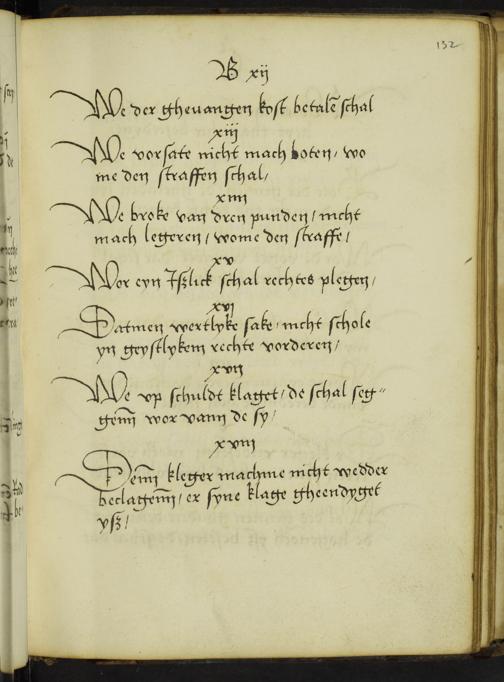 132
B xij
We der gheuangen kost betalē schal
xiij
We vorsate nicht mach boten, wo
me den straffen schal,
xiiii
We broke van dren punden, nicht
mach legeren, wome den straffe,
xv
Wor eyn Jßlick schal rechtes plegen,
xvj
Datmen wertlyke sake, nicht schole
yn geystlykem rechte vorderen,
xvii
We vp schuldt klaget, de schal seg=
genn wor vann de sy,
xviii
Demm kleger machme nicht wedder
beclagenn, er syne klage gheendyget
yß,